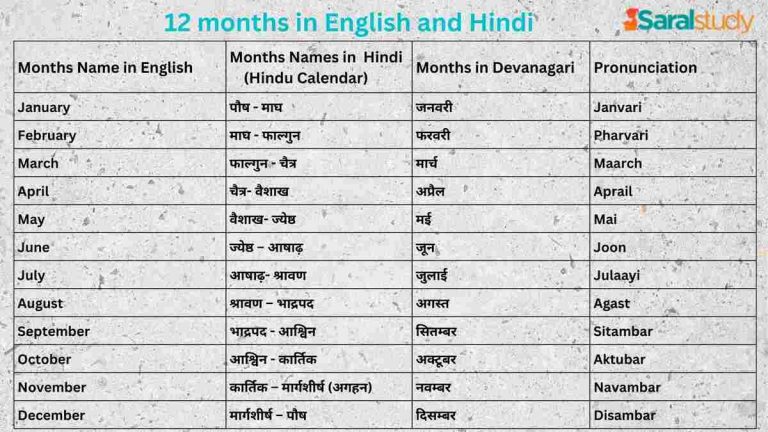 12 months in English and Hindi
Saralstudy
Months Name in English
Months Names in Hindi
(Hindu Calendar)
Months in Devanagari
Pronunciation
January पौष - माघ जनवरी Janvari
February माघ - फाल्गुन फरवरी Pharvari
March फाल्गुन - चैत्र मार्च Maarch
April चैत्र- वैशाख अप्रैल Aprail
May वैशाख- ज्येष्ठ मई Mai
June ज्येष्ठ – आषाढ़ जून Joon
July आषाढ़- श्रावण जुलाई Julaayi
August श्रावण – भाद्रपद अगस्त Agast
September भाद्रपद - आश्विन सितम्बर Sitambar
October आश्विन - कार्तिक अक्टूबर Aktubar
November कार्तिक – मार्गशीर्ष (अगहन) नवम्बर Navambar
December मार्गशीर्ष – पौष दिसम्बर Disambar